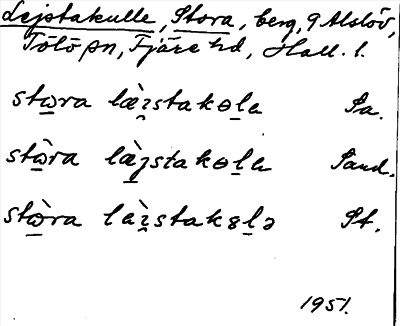 Lejstakulle, Stora, berg, 9 Alslöv,
Tölö sn, Fjäre hd, Hall. l.
stω̲ra læ̀ı̨stakɵl̲a Sa.
stὼ̲ra læ̀ȷstakɵl̲a Sand.
stὼ̲ra laı̨̀stak8l̲ə St.
1951.